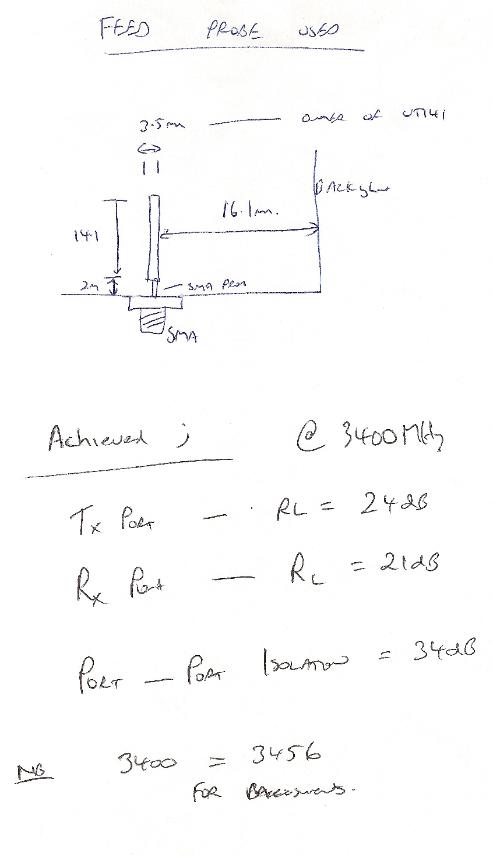 FEED PROBE USED
3.5mm — OUTER OF UT141
BACKPLANE
16.1mm.
14.1
2m
SMA PIN
SMA
Achieved ; @ 3400MHz
Tx PORT — RL = 24dB
Rx Port — RL = 21dB
PORT — PORT ISOLATION = 34dB
NB 3400 = 3456
FOR